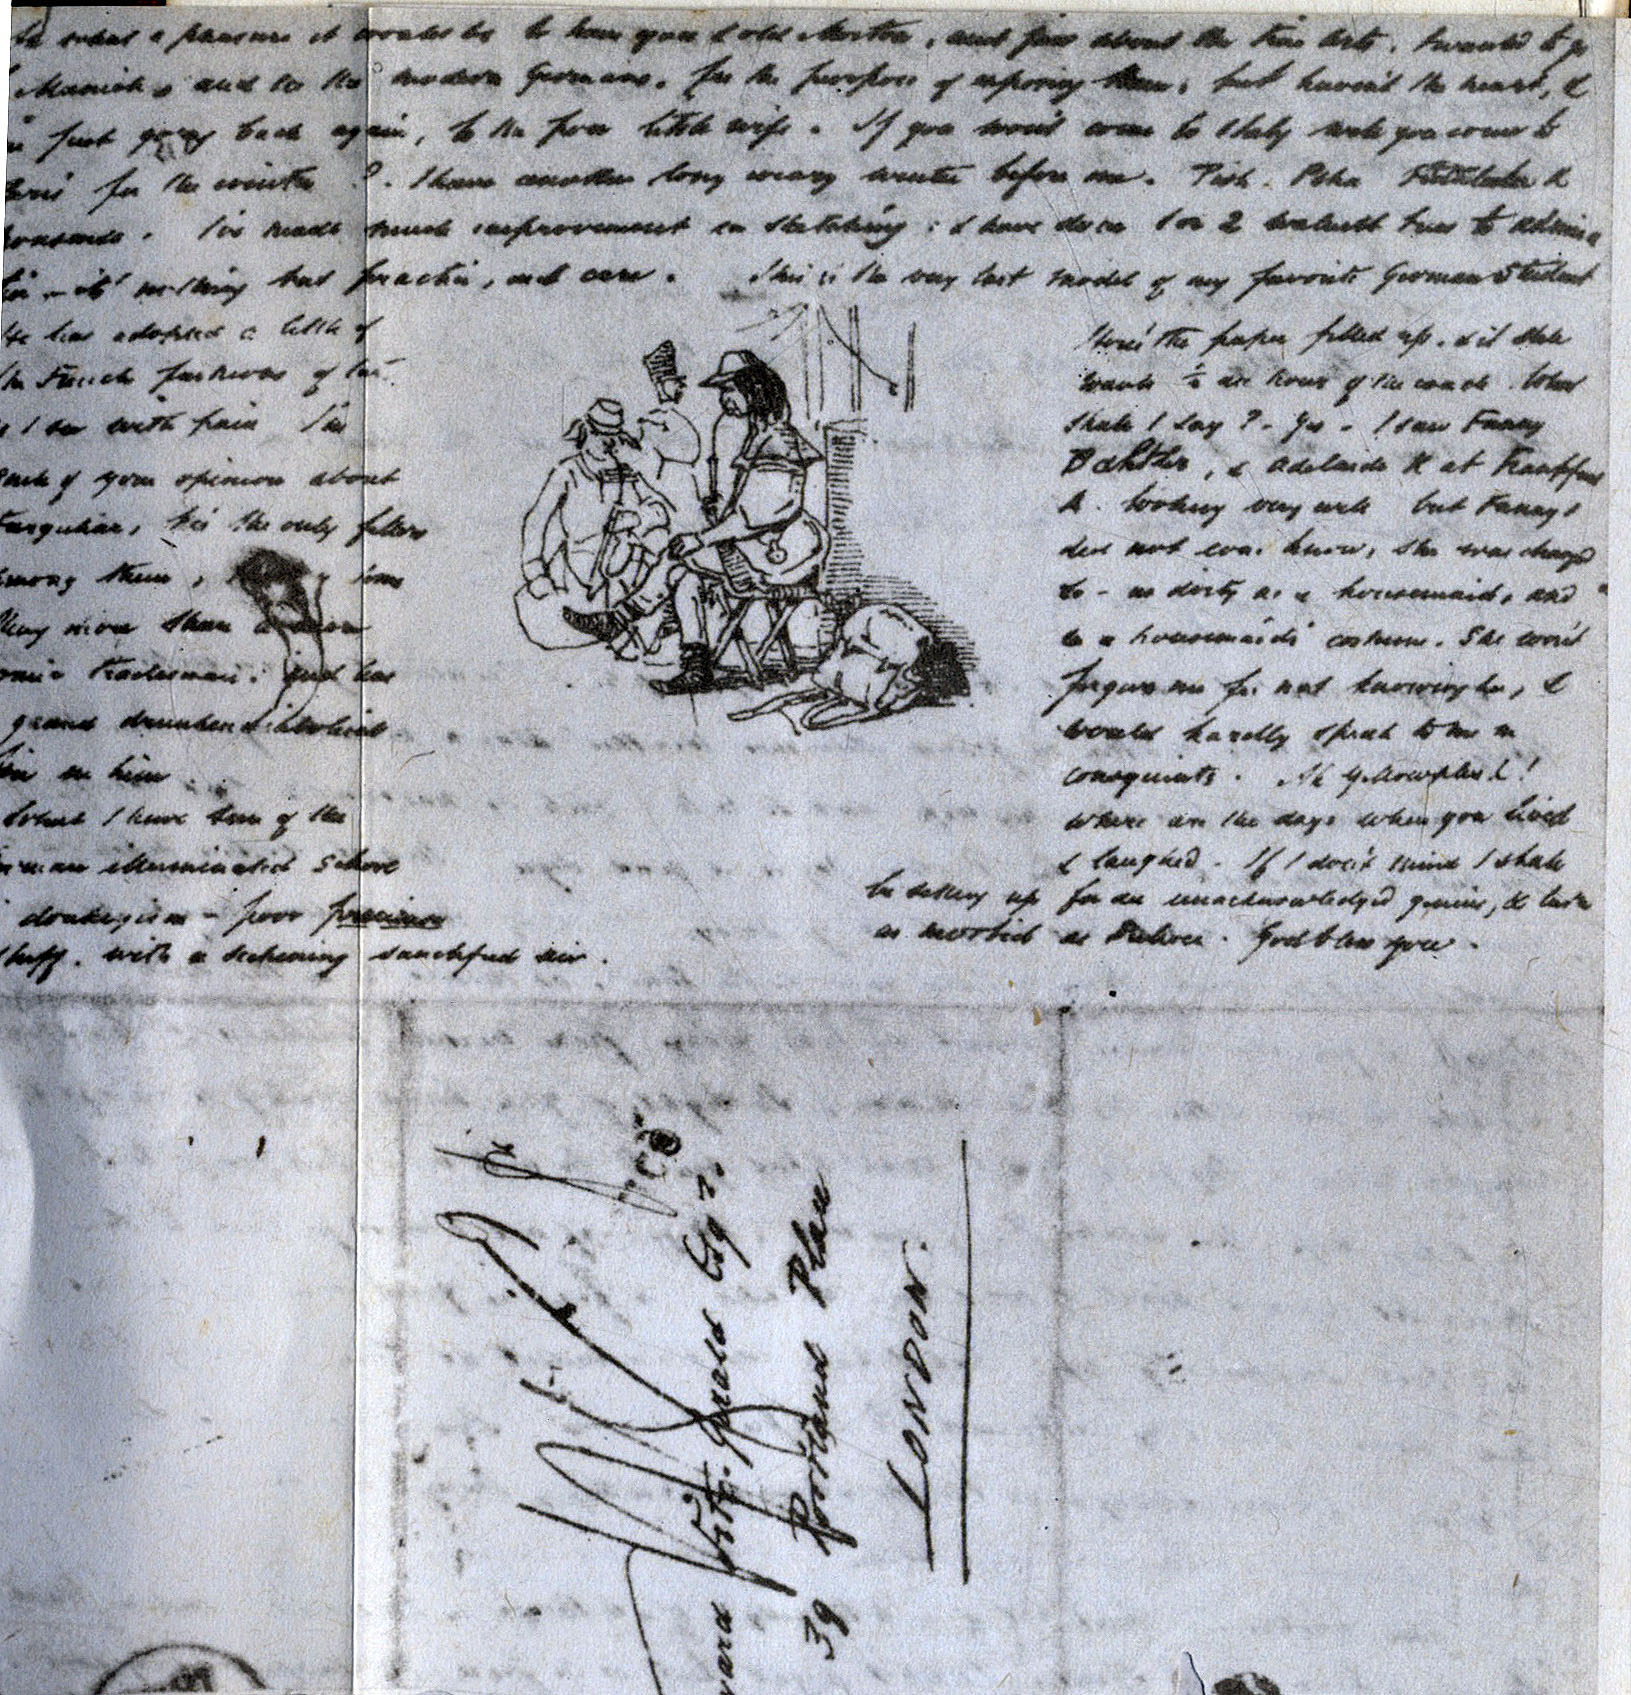 what a pleasure it would be to have you & old Morton, and jaw about the Fine Arts. I wanted to go
Munich and see the modern Germans. for the purpose of exposing them; but haven't the heart, &
just going back again, to the poor little wife. If you won't come to Italy will you come to
for the winter? I have another long weary winter before me. Pish. Psha &
thousands. I've made much improvement in sketching: & have done 1 or 2 walnut trees to
it's nothing but practice, and care. This is the very last model of my favorite German Student
He has adopted a little of
the French fashions of late
I see with pain I'm
of your opinion about
Farquhar, he's the only fellow
among them, some
thing more than a mere
comic tradesman: and has
grand drunken diabolical
fire in him
What I have seen of the
German illuminated school
donkeyism - poor precious
stuff. with a sickening sanctified air.
Here's the paper filled up. & it still
wants ½ an hour of the coach. What
shall I say? - Yes - I saw Fanny
& Adelaide K at Frankfurt
A. looking very well but Fanny I
did not even know, she was changed
so - as dirty as a housemaid, and
in a housemaid's costume. She won't
forgive me for not knowing her, &
would hardly speak to me in
consequence. Ah Yellowplush!
where are the days when you lived
& laughed. If I don't mind I shall
be setting up for an unacknowledged genius, & turn
as morbid as Bulwer. God bless you.
Edward Fitz-Gerald Esqre.
39 Portland Place
LONDON.